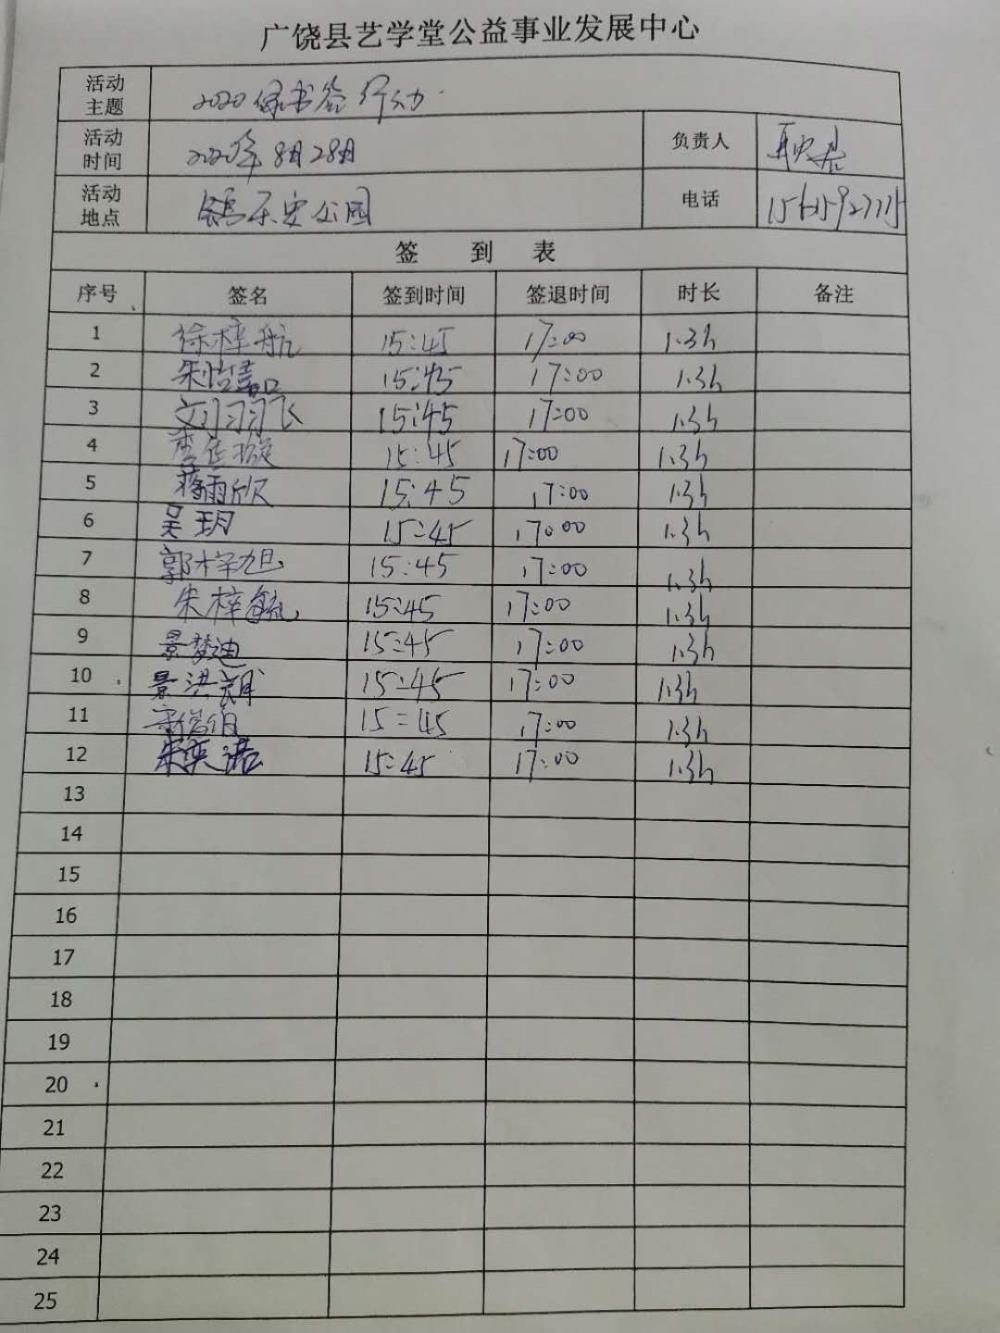 广饶县艺学堂公益事业发展中心
活动主题 2020绿书签行动
活动时间 2020年8月28日 负责人
活动地点 乐安公园 电话
签 到 表
序号 签名 签到时间 签退时间 时长 备注
1 徐梓航 15:45 17:00 1.3h
2 朱怡嘉 15:45 17:00 1.3h
3 刘习习飞 15:45 17:00 1.3h
4 李 15:45 17:00 1.3h
5 蒋雨欣 15:45 17:00 1.3h
6 吴玥 15:45 17:00 1.3h
7 郭梓旭 15:45 17:00 1.3h
8 朱梓毓 15:45 17:00 1.3h
9 景梦迪 15:45 17:00 1.3h
10 景洪 15:45 17:00 1.3h
11 15:45 17:00 1.3h
12 朱奕诺 15:45 17:00 1.3h
13
14
15
16
17
18
19
20
21
22
23
24
25